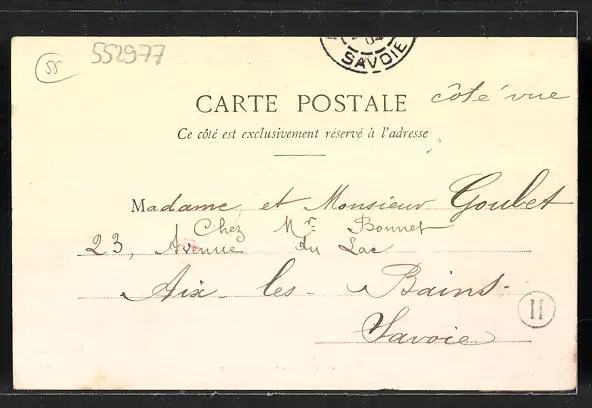 55
552977
04
SAVOIE
CARTE POSTALE
côté vue
Ce côté est exclusivement réservé à l'adresse
Madame et Monsieur Goubet
Chez Mr Bonnet
23, Avenue du Lac
Aix-les-Bains-
Savoie
H